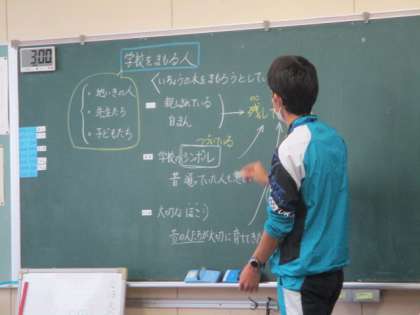 3:00
学校をまもる人
・地いきの人
・先生たち
・子どもたち
くいちょうの木をまもろうとしてい
親しまれている
自まん
残し
つたえている
学校のシンボル
昔通っていた人も
大切な
昔の人たちが大切に育ててきた